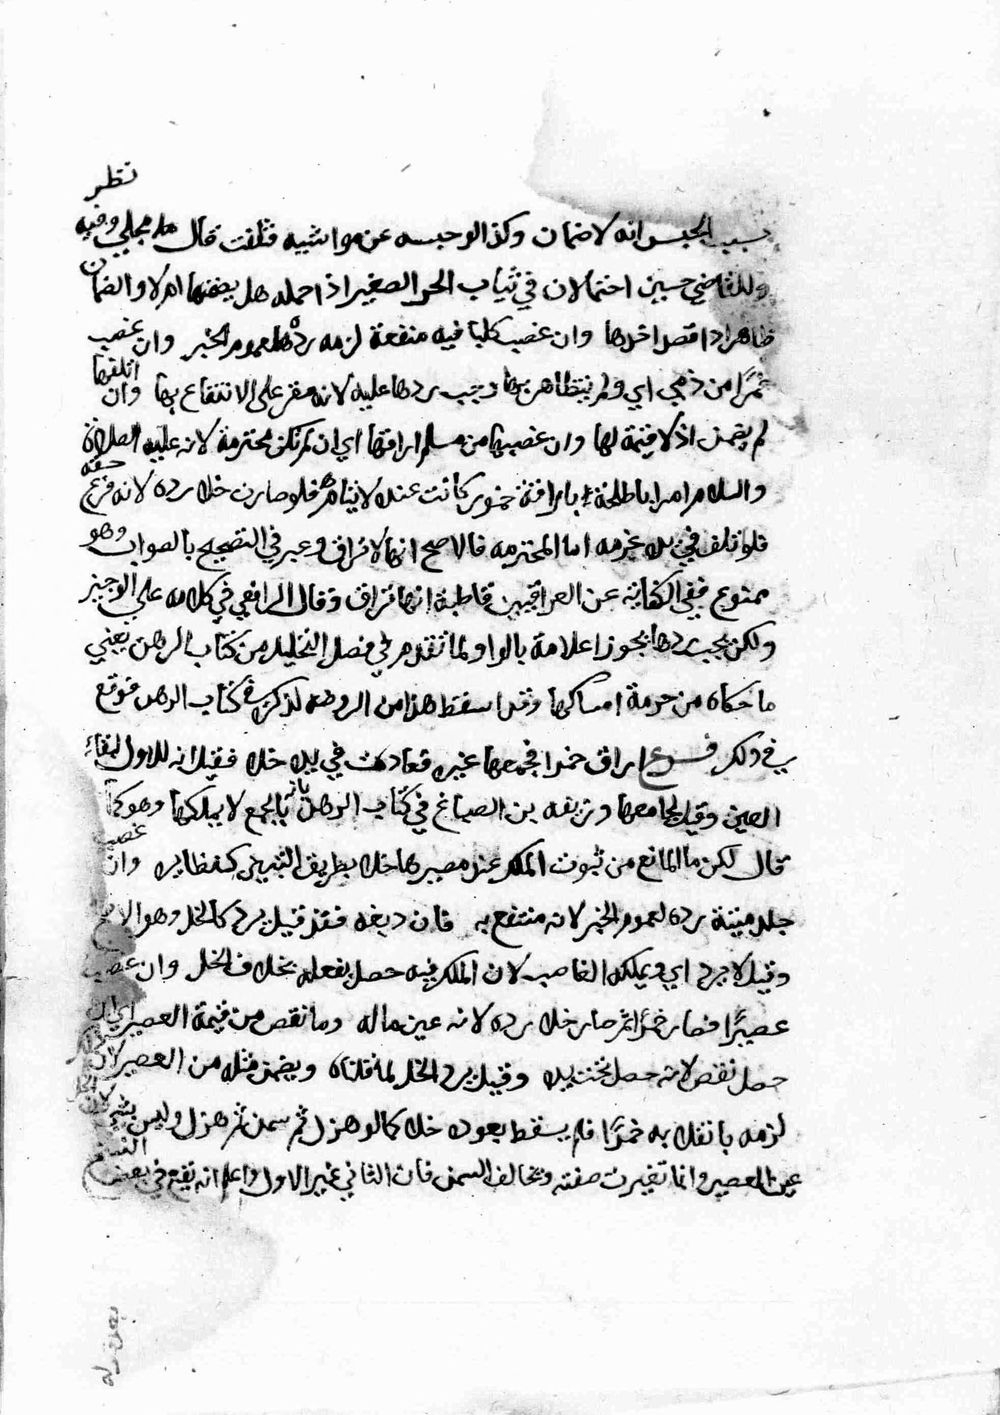 بسبب الحبس انه لا ضمان وكذا لو حبسه عن مواشيه فتلفت قال مجلي وفيه نظر
وللقاضي حسين احتمالان في ثياب الحر الصغير اذا حمله هل يضمنها ام لا والضمان
ظاهر اذا قصد اخذها وان غصب كلبا فيه منفعة لزمه رده لعموم الخبر وان غصب
خمرًا من ذمي اي ولم يتظاهر بها وجب ردها عليه لانه مقر على الانتفاع بها وان اتلفها
لم يضمن اذ لا قيمة لها وان غصبها من مسلم اراقها اي ان لم تكن محترمة لانه عليه الصلاة
والسلام امر ابا طلحة باراقة خمور كانت عنده لايتام فلو صارت خلا رده لانه فرع حقه
فلو تلف في يده غرمه اما المحترمة فالاصح انها لا تراق وعبر في التصحيح بالصواب وهو
ممنوع ففي الكفاية عن العراقيين قاطبة انها تراق وقال الرافعي في كلامه على الوجيز
ولكن يجب ردها يجوز اعلامة بالواو لما تقدم في فصل التخليل من كتاب الرهن يعني
ما حكاه من حرمة امساكها وقد اسقط هذا من الروضه لذكره في كتاب الرهن فوقع
في ذلك فرع اراق خمرا فجمعها غيره فعادت في يده خلا فقيل انه للاول لبقاء
العين وقيل لجامعها وزيفه بن الصباغ في كتاب الرهن بانه بالجمع لا يملكها وهو كما
قال لكن ما المانع من ثبوت الملك عند مصيرها خلا بطريق كنظايره وان غصب
جلد ميتة رده لعموم الخبر لانه منتفع به فان دبغه فقد قيل يرد كالخل وهو الاصح
وقيل لا يرد اي ويملكه الغاصب لان الملك فيه حصل بفعله بخلاف الخل وان غصب
عصيرًا فصار خمرًا ثم صار خلا رده لانه عين ماله وما نقص من قيمة العصير ان
حصل نقص لانه حصل تحت يده وقيل يرد الخل لما قلناه ويضمن مثله من العصير لان
لزمه بانقلابه خمرًا فلم يسقط بعوده خلا كما لو هزل ثم سمن ثم هزل وليس بشي لان الخل
عين العصير وانما تغيرت صفته ويخالف السمن فان الثاني غير الاول واعلم انه يقع في بعض النسخ
بعض